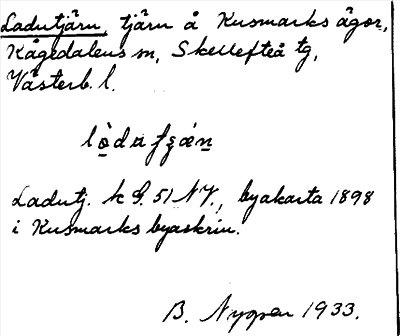 Ladutjärn, tjärn å Kusmarks ägor,
Kågedalens sn, Skellefteå tg,
Västerb. l.
Ladutj. k 51 NV., byakarta 1898
i Kusmarks byaskrin.
B. Nygren 1933.